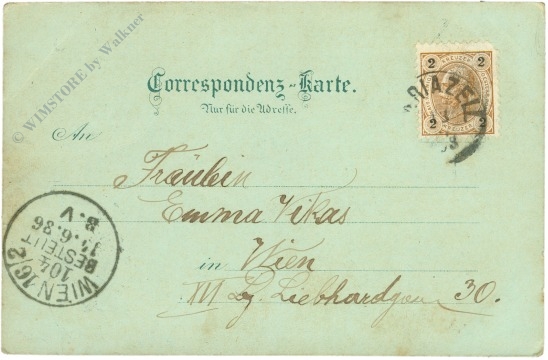 © WIMSTORE by Walkner
Correspondenz-Karte.
Nur für die Adresse.
An
Fräulein
Emma Vikas
in Wien
III Bz. Liebhardgasse 30.
2 KREUZER 2
2 2
KREUZER
RIAZELL
WIEN 16/2
104
BESTELLT
6.36
8.V